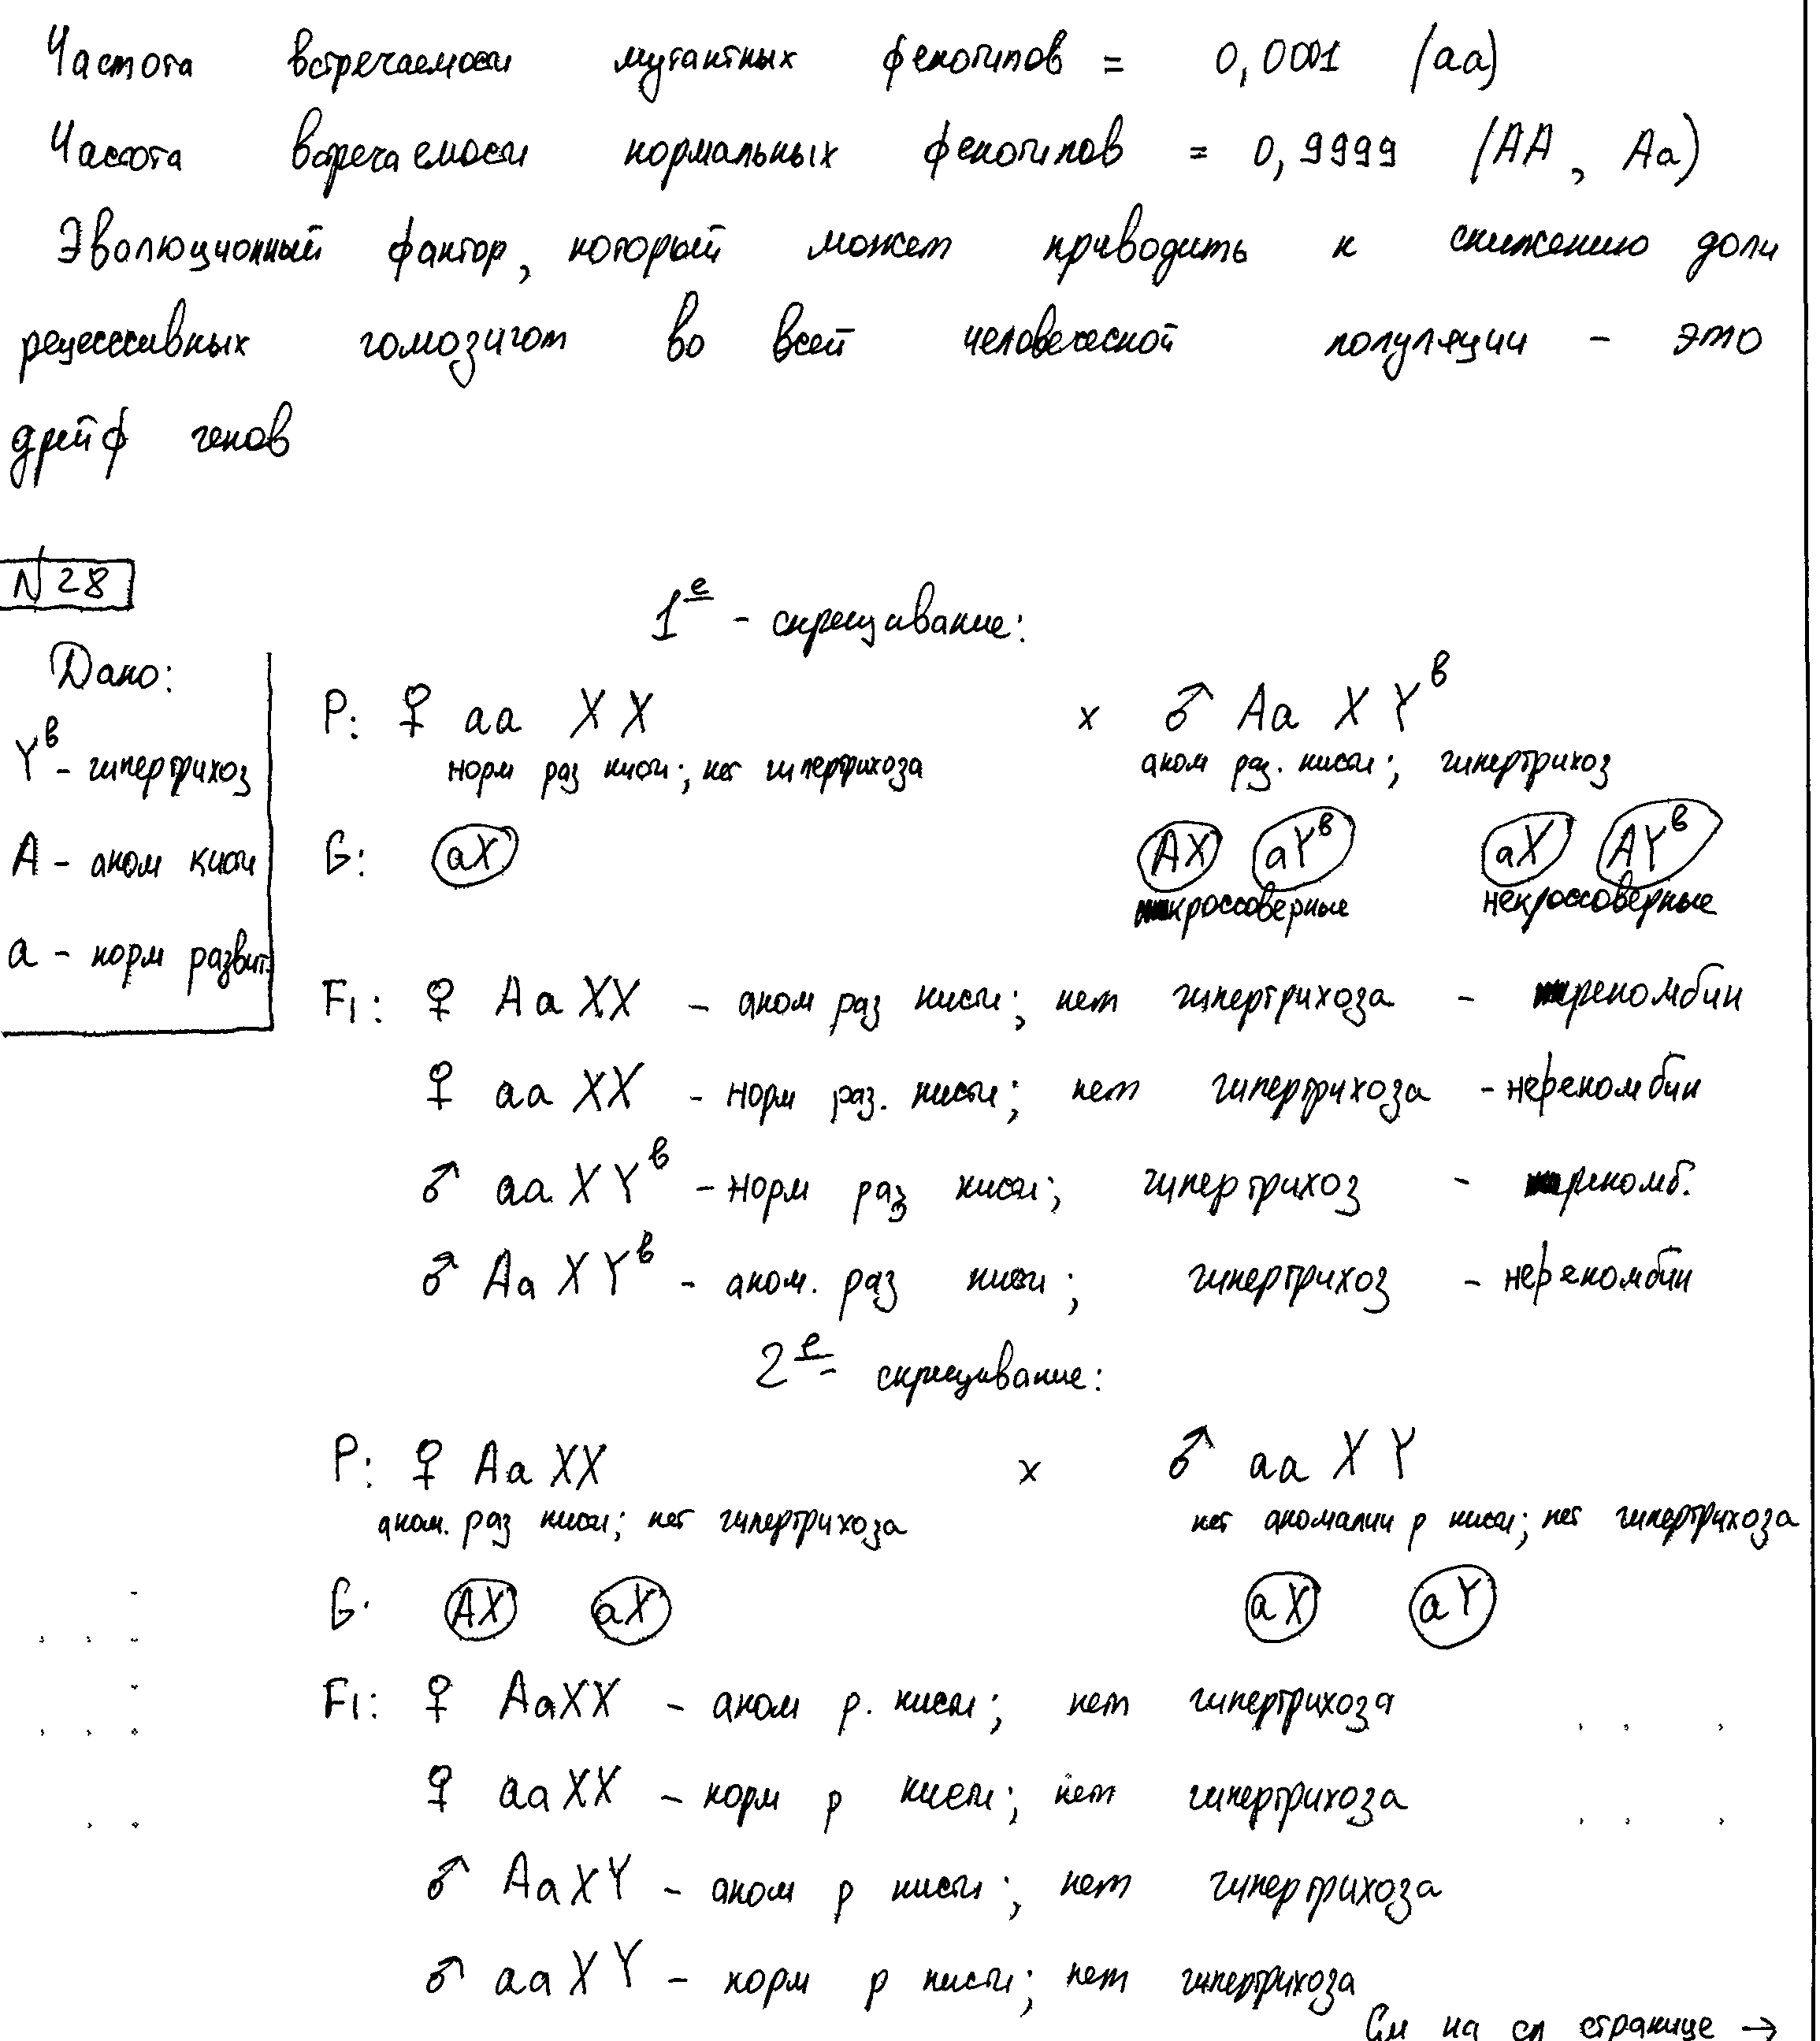 Частота встречаемости мутантных фенотипов = 0,0001 (аа)
Частота встречаемости нормальных фенотипов = 0,9999 (АА, Аа)
Эволюционный фактор, который может приводить к снижению доли
рецессивных гомозигот во всей человеческой популяции - это
дрейф генов
N28
1е - скрещивание:
Дано:
Yв - гипертрихоз
А - аном кисти
а - норм развит.
P: ♀ aa X X x ♂ Aa X Yв
норм раз кисти; нет гипертрихоза аном раз. кисти; гипертрихоз
G: aX AX aYв aX AYв
кроссоверные некроссоверные
F1: ♀ Aa XX - аном раз кисти; нет гипертрихоза - рекомбин
♀ aa XX - норм раз. кисти; нет гипертрихоза - нерекомбин
♂ aa X Yв - норм раз кисти; гипертрихоз - рекомб.
♂ Aa X Yв - аном. раз кисти; гипертрихоз - нерекомбин
2е - скрещивание:
P: ♀ Aa XX x ♂ aa X Y
аном. раз кисти; нет гипертрихоза нет аномалии р кисти; нет гипертрихоза
G. AX aX aX aY
F1: ♀ AaXX - аном р. кисти; нет гипертрихоза
♀ aaXX - норм р кисти; нет гипертрихоза
♂ AaXY - аном р кисти; нет гипертрихоза
♂ aaXY - норм р кисти; нет гипертрихоза
См на сл странице →